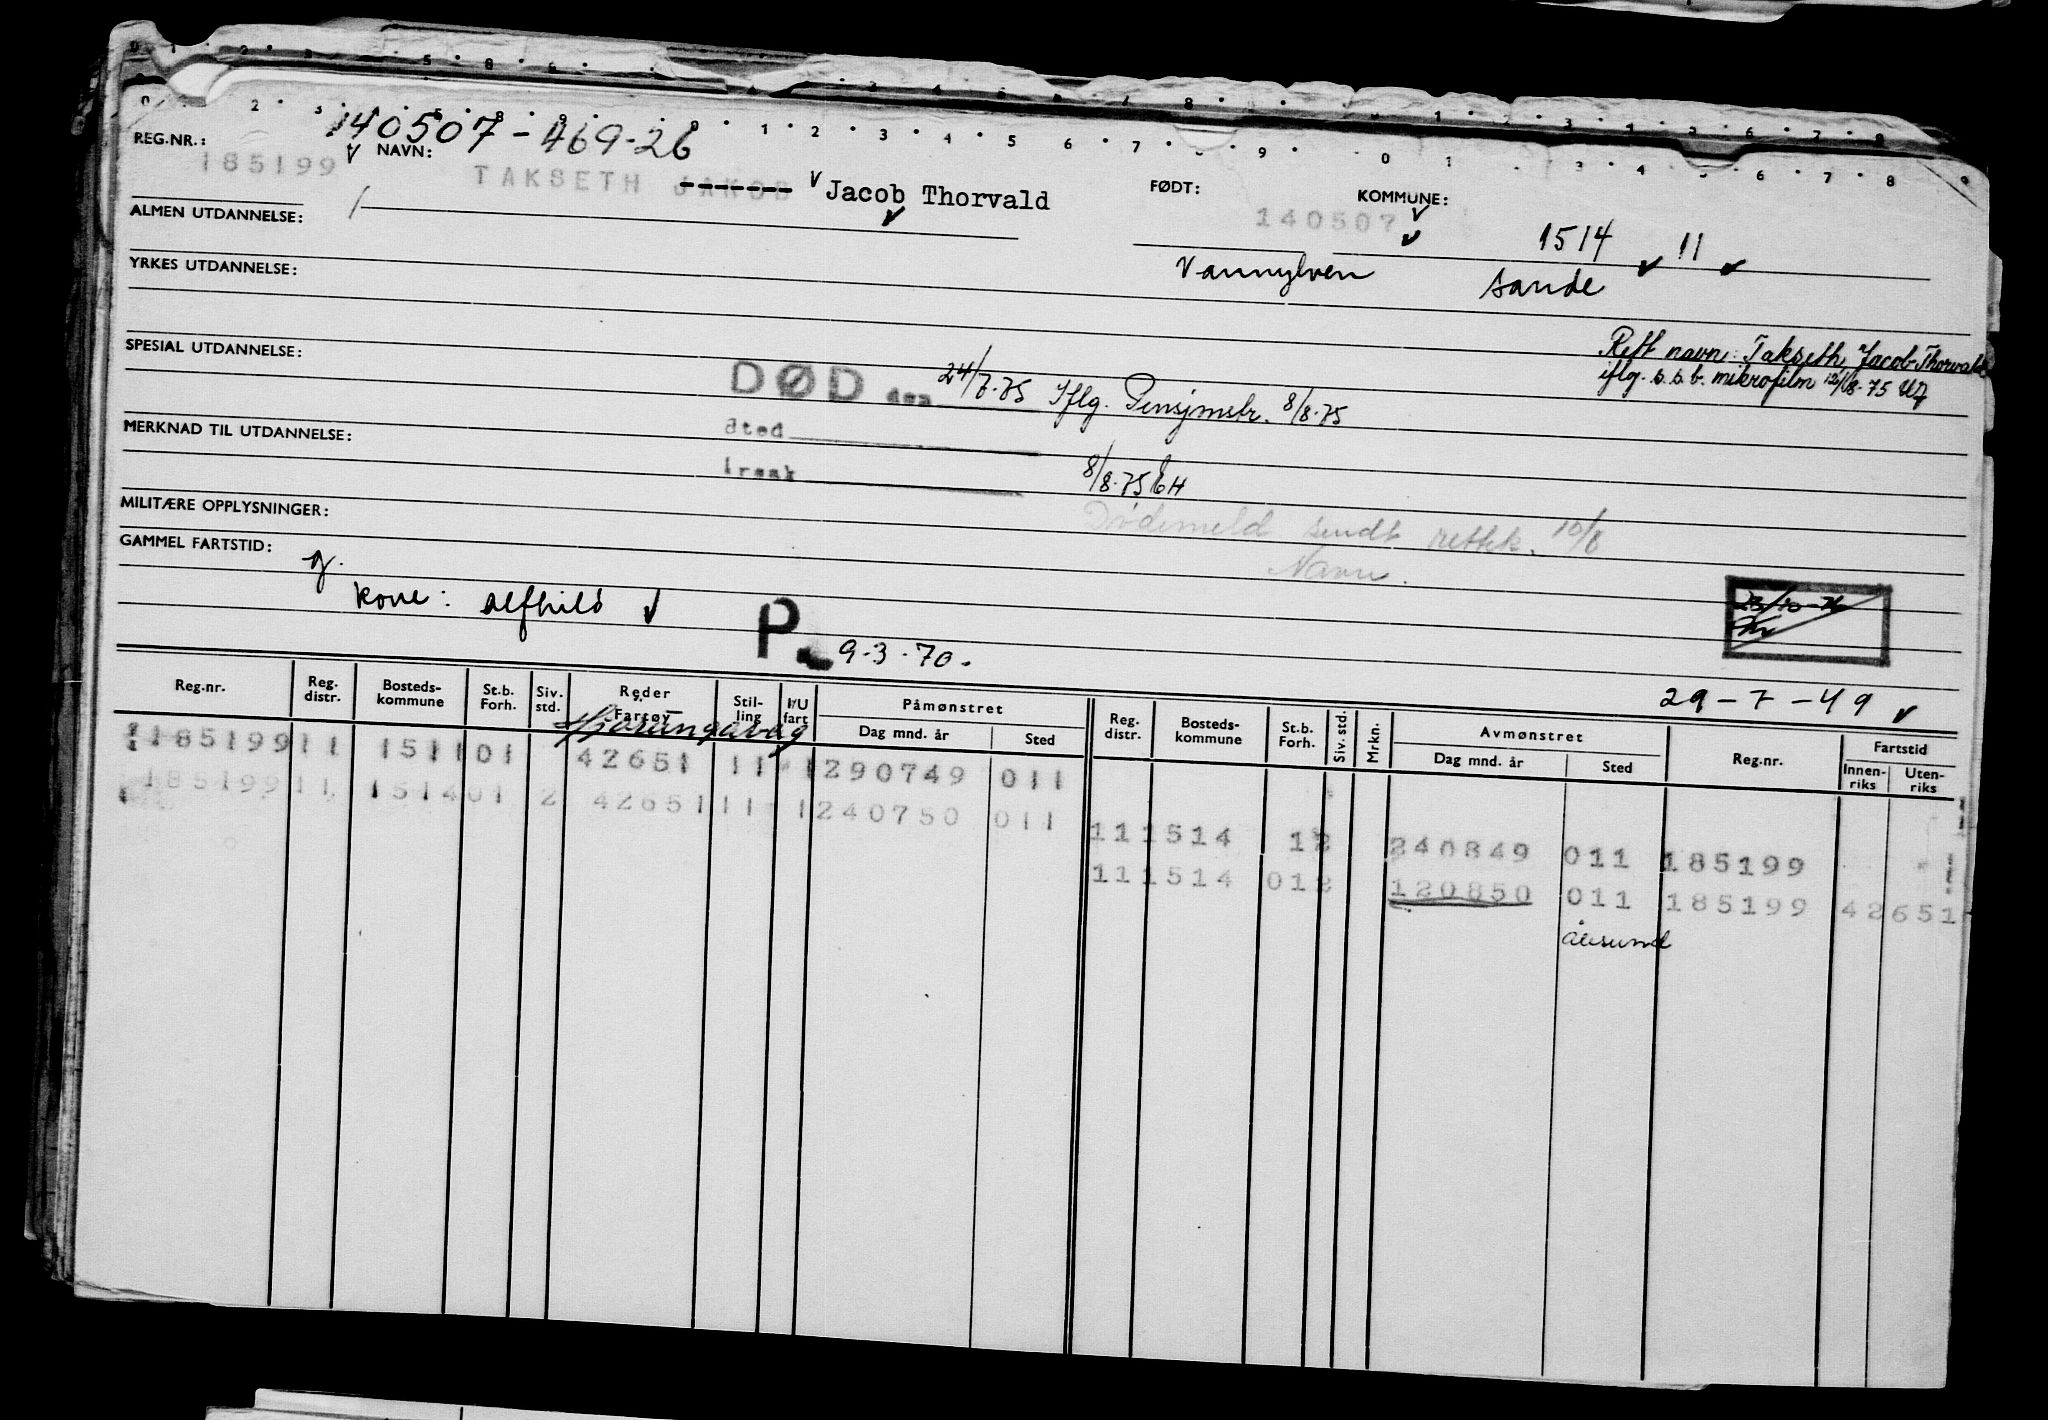 140507-469-26
REG.NR.: 185199 NAVN: TAKSETH JAKOB Jacob Thorvald FØDT: 140507 KOMMUNE: 1514 11
ALMEN UTDANNELSE:
Vannylven Sande
YRKES UTDANNELSE:
Rett navn: Takseth, Jacob Thorvald
iflg. s.s.b. mikrofilm 12/8-75
SPESIAL UTDANNELSE:
DØD den 24/7-75 Iflg. Pensjmelr. 8/8-75
sted
MERKNAD TIL UTDANNELSE:
årsak 8/8-75
MILITÆRE OPPLYSNINGER:
Dødsmeld sendt rettk. 10/8
Navn.
GAMMEL FARTSTID:
g.
kone: Alfhild
P. 9-3-70.
29-7-49
Reg.nr. Reg. distr. Bosteds-kommune St.b. Forh. Siv. std. Reder o. Fartøy Stil-ling I/U fart Påmønstret Dag mnd. år Sted Reg. distr. Bosteds-kommune St.b. Forh. Siv. std. Mrkn. Avmønstret Dag mnd. år Sted Reg.nr. Fartstid Innen-riks Uten-riks
Hjørungavåg
185199 11 1511 01 42651 11 1 290749 011
185199 11 1514 01 2 42651 11 1 240750 011
11 1514 1 2 240849 011 185199
11 1514 01 2 120850 011 185199 42651
Ålesund